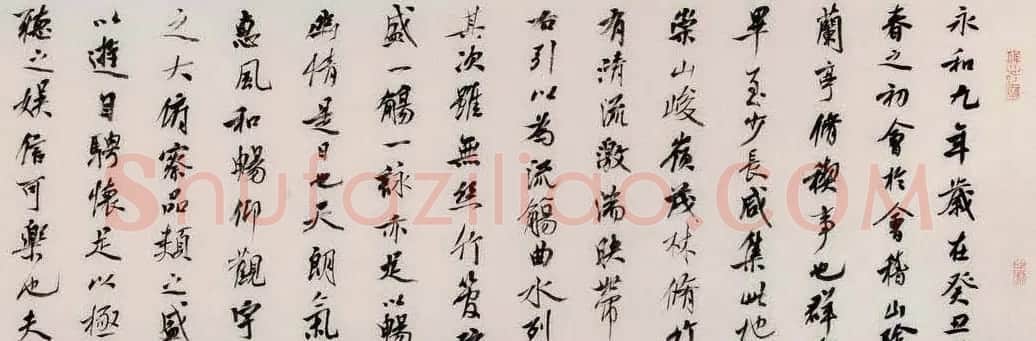 永和九年歲在癸丑
春之初會於會稽山陰
蘭亭脩禊事也群
畢至少長咸集此地
崇山峻嶺茂林脩竹
有清流激湍映帶
右引以為流觴曲水列
其次雖無絲竹管弦
盛一觴一詠亦足以暢
幽情是日也天朗氣
惠風和暢仰觀宇
之大俯察品類之盛
以遊目騁懷足以極
聽之娛信可樂也夫
Shufaziliao.COM